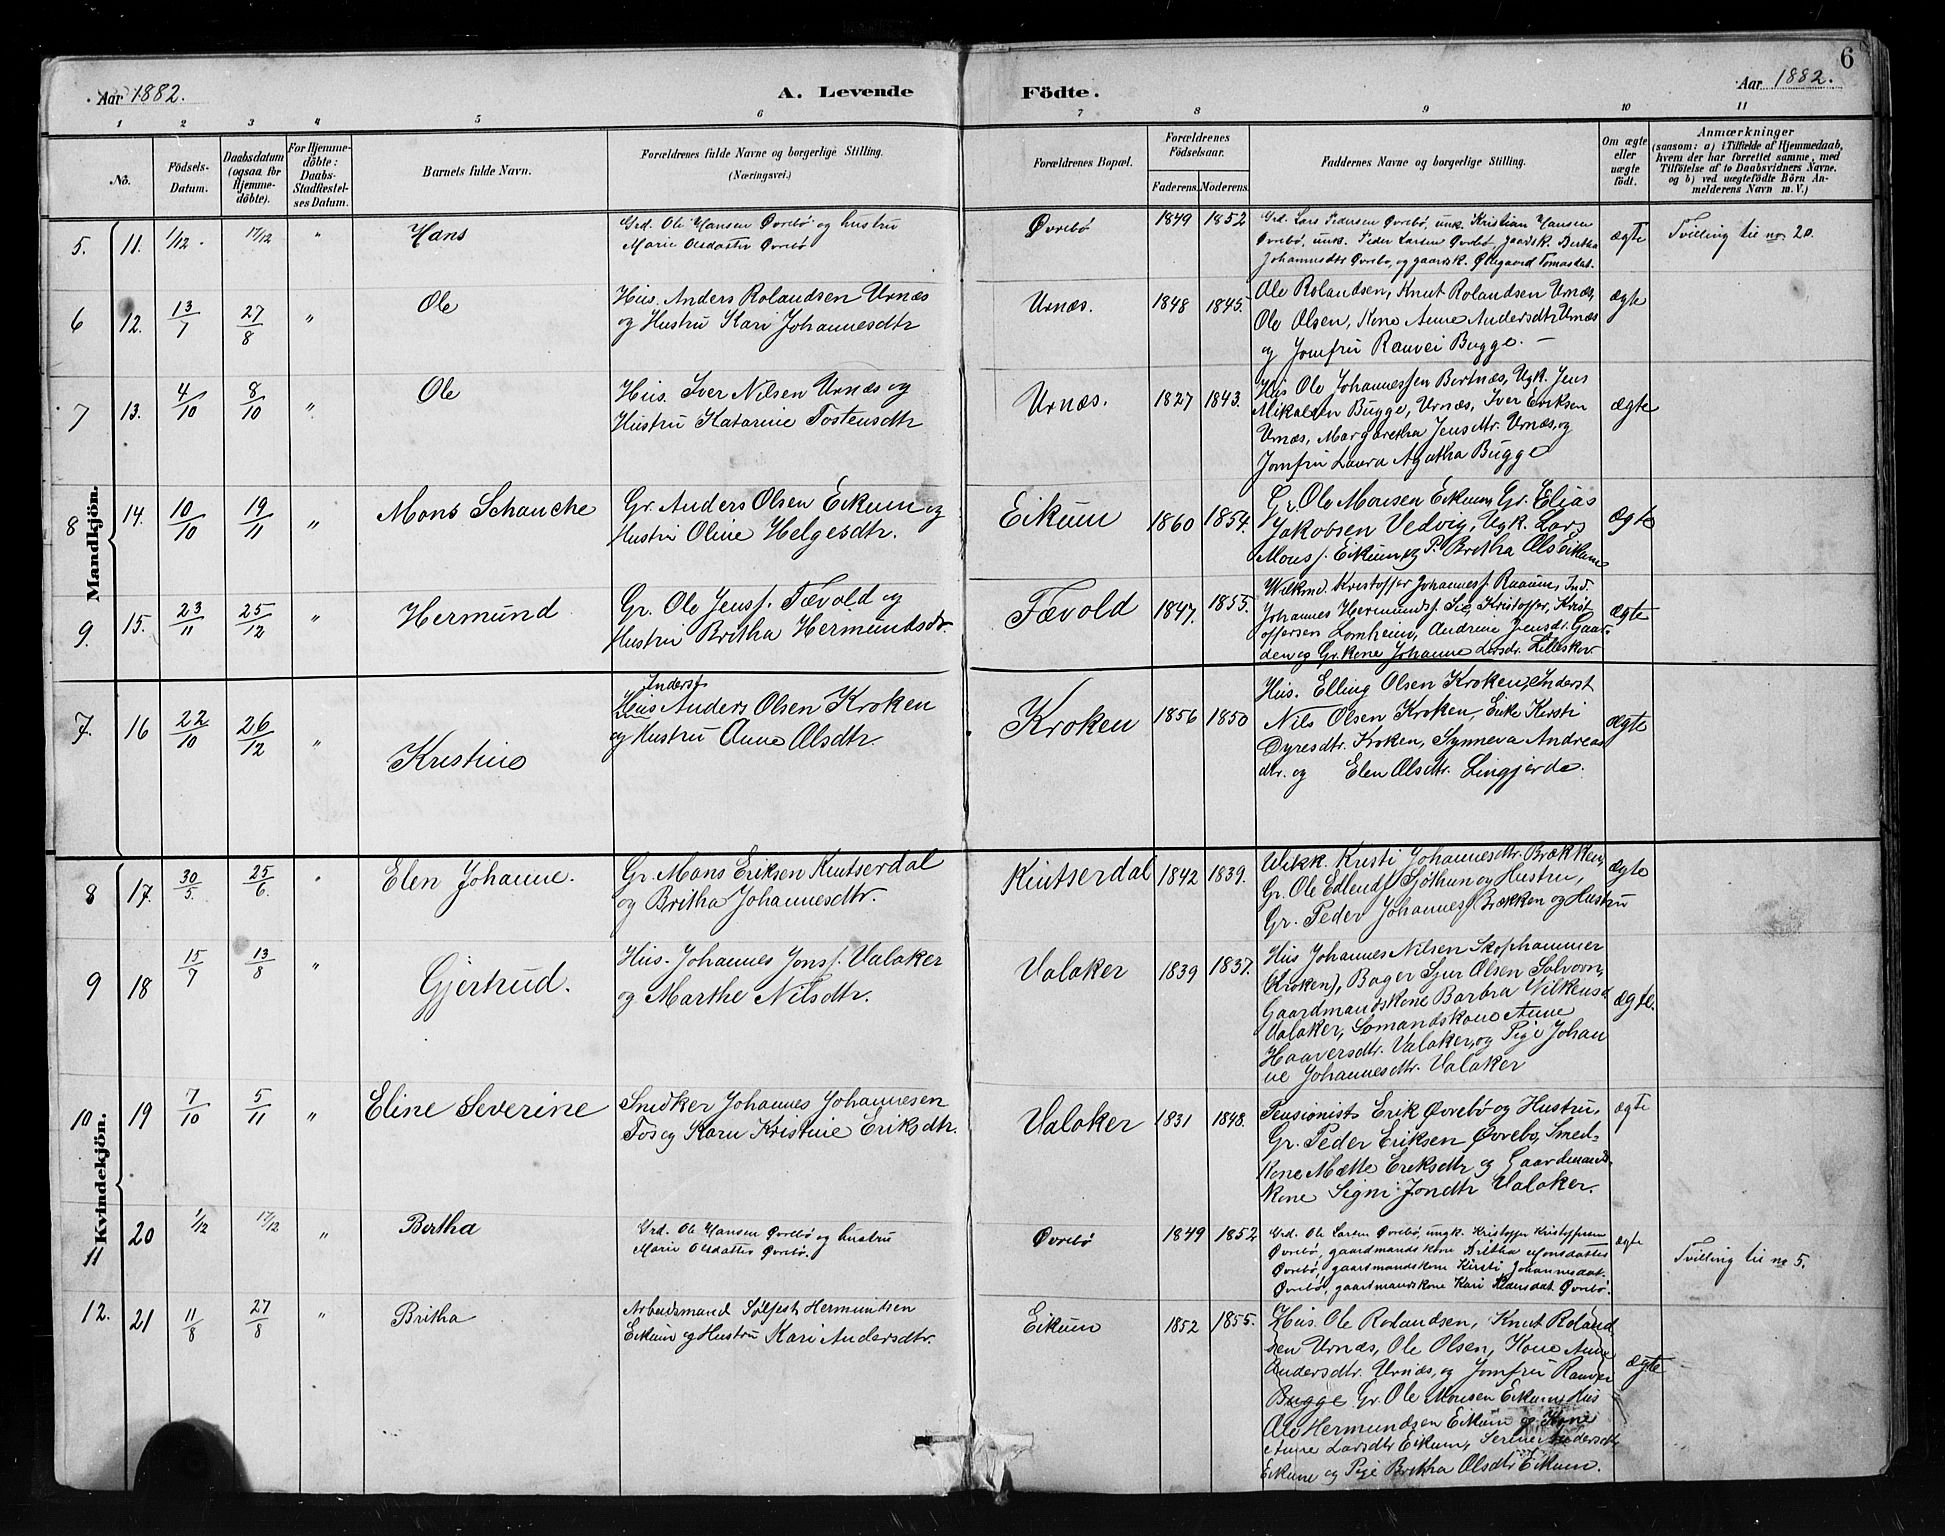 6
Aar 1882.
A. Levende
Födte.
Aar 1882.
1 2 3 4 5 6 7 8 9 10 11
No.
Födsels-
Datum.
Daabsdatum
(ogsaa for
Hjemme-
döbte).
For Hjemme-
döbte:
Daabs-
Stadfæstel-
ses Datum.
Barnets fulde Navn.
Forældrenes fulde Navne og borgerlige Stilling.
(Næringsvei.)
Forældrenes Bopæl.
Forældrenes
Födselsaar.
Faderens.
Moderens.
Faddernes Navne og borgerlige Stilling.
Om ægte
eller
uægte
födt.
Anmærkninger
(saasom: a) i Tilfælde af Hjemmedaab,
hvem der har forrettet samme, med
Tilföielse af to Daabsvidners Navne,
og b) ved uægtefödte Börn An-
melderens Navn m. V.)
Mandkjön.
5. 11. 1/12. 17/12 " Hans
Grd. Ole Hansen Øvrebø og hustru
Marie Olsdatter Øvrebø
Øvrebø 1849 1852
Grd. Lars Pedersen Øvrebø, unk. Kristian Hansen
Øvrebø, unk. Peder Larsen Øvrebø, gaardsk. Bertha
Johannesdtr Øvrebø, og gaardsk. Ølegaard Tomasdat.
ægte
Tvilling til no. 20.
6 12. 13/7 27/8 " Ole
Hus. Anders Rolandsen Urnæs
og Hustru Kari Johannesdtr
Urnæs. 1848 1845.
Ole Rolandsen, Knut Rolandsen Urnæs,
Ole Olsen, Kone Anne Andersdtr Urnæs
og Jomfru Ranvei Bugge. —
ægte
7 13. 4/10 8/10 " Ole
Hus. Iver Nilsen Urnæs og
Hustru Katarine Tostensdtr
Urnæs. 1827 1843.
Hus Ole Johannessen Bortnæs, Ugk. Jens
Mikalsen Bugge, Urnæs, Iver Eriksen
Urnæs, Margaretha Jensdtr. Urnæs, og
Jomfru Laura Agatha Bugge
ægte
8 14. 10/10 19/11 " Mons Schanche
Gr. Anders Olsen Eikum og
Hustru Oline Helgesdtr.
Eikum 1860 1854.
Gr. Ole Monsen Eikum, Gr. Elias
Jakobsen Vedvig, Ugk. Lars
Mons f. Eikum og P. Britha Ols Eikum
ægte
9. 15. 23/11 25/12 " Hermund
Gr. Ole Jensf. Fævold og
Hustru Britha Hermundsdr.
Fævold 1847. 1855.
Kristoffer Johannesf. Raaum, Ind.
Johannes Hermundsf. Kristoffer, Krist
offersen Lomheim, Andrine Jensdr. Gaar-
den og Gr. kone Johanne Larsdr. Lilleskov.
ægte
7. 16 22/10 26/12 " Kristine
Inderst
Hus Anders Olsen Kroken
og Hustru Anne Olsdtr.
Kroken 1856 1850
Hus. Elling Olsen Kroken, Inderst
Nils Olsen Kroken, Enke Kirsti
Dyresdtr. Kroken, Synneva Andreas
dtr. og Elen Olsdtr. Lingjerde.
ægte
Kvindekjön.
8 17. 30/5. 25/6. " Elen Johanne.
Gr. Mons Eriksen Kintserdal
og Britha Johannesdtr.
Kintserdal 1842 1839.
Kristi Johannesdtr. Brækken,
Gr. Ole Edlendsf Sjøthun og Hustru,
Gr. Peder Johannesf Brækken og Hustru
ægte
9 18 15/7 13/8 " Gjertrud.
Hus. Johannes Jonsf. Valaker
og Marthe Nilsdtr.
Valaker 1839 1837.
Hus Johannes Nilsen Skophammer
(Kroken), Bager Sjur Olsen Solvorn,
Gaardmandskone Barbra Vilkensd.
Valaker, Sømandskone Anne
Haaversdtr. Valaker, og Pige Johan
ne Johannesdtr. Valaker
ægte.
10 19 7/10 5/11 " Eline Severine
Snedker Johannes Johannesen
Tos og Karn Kristine Eriksdtr.
Valaker 1831 1848.
Pensionist Erik Øvrebø og Hustru,
Gr. Peder Eriksen Øvrebø, Smed-
kone Mætte Eriksdtr og Gaardmands-
kone Signi Jondtr Valaker.
ægte
11 20 1/12 17/12 " Bertha
Grd. Ole Hansen Øvrebø og hustru
Marie Olsdatter Øvrebø.
Øvrebø 1849 1852
Grd. Ole Larsen Øvrebø, ungk. Kristoffer Kristoffersen
Øvrebø, gaardmandskone Britha Monsdatter
Øvrebø, gaardmandskone Kirsti Johannesdat.
Øvrebø, gaardmandskone Kari Pedersdat. Øvrebø.
ægte
Tvilling til no 5.
12. 21 11/8 27/8 " Britha
Arbeidsmand Sølfest Hermundsen
Eikum og Hustru Kari Andersdtr.
Eikum 1852 1855.
Hus. Ole Rolandsen, Knut Roland
sen Urnæs, Ole Olsen, Kone Anne
Andersdtr. Urnæs, og Jomfru Ranvei
Bugge. Gr. Ole Monsen Eikum, Hus
Ole Hermundsen Eikum og Kone
Anne Larsdtr Eikum, Serine Andersdtr
Eikum og Pige Britha Olsdtr Eikum.
ægte